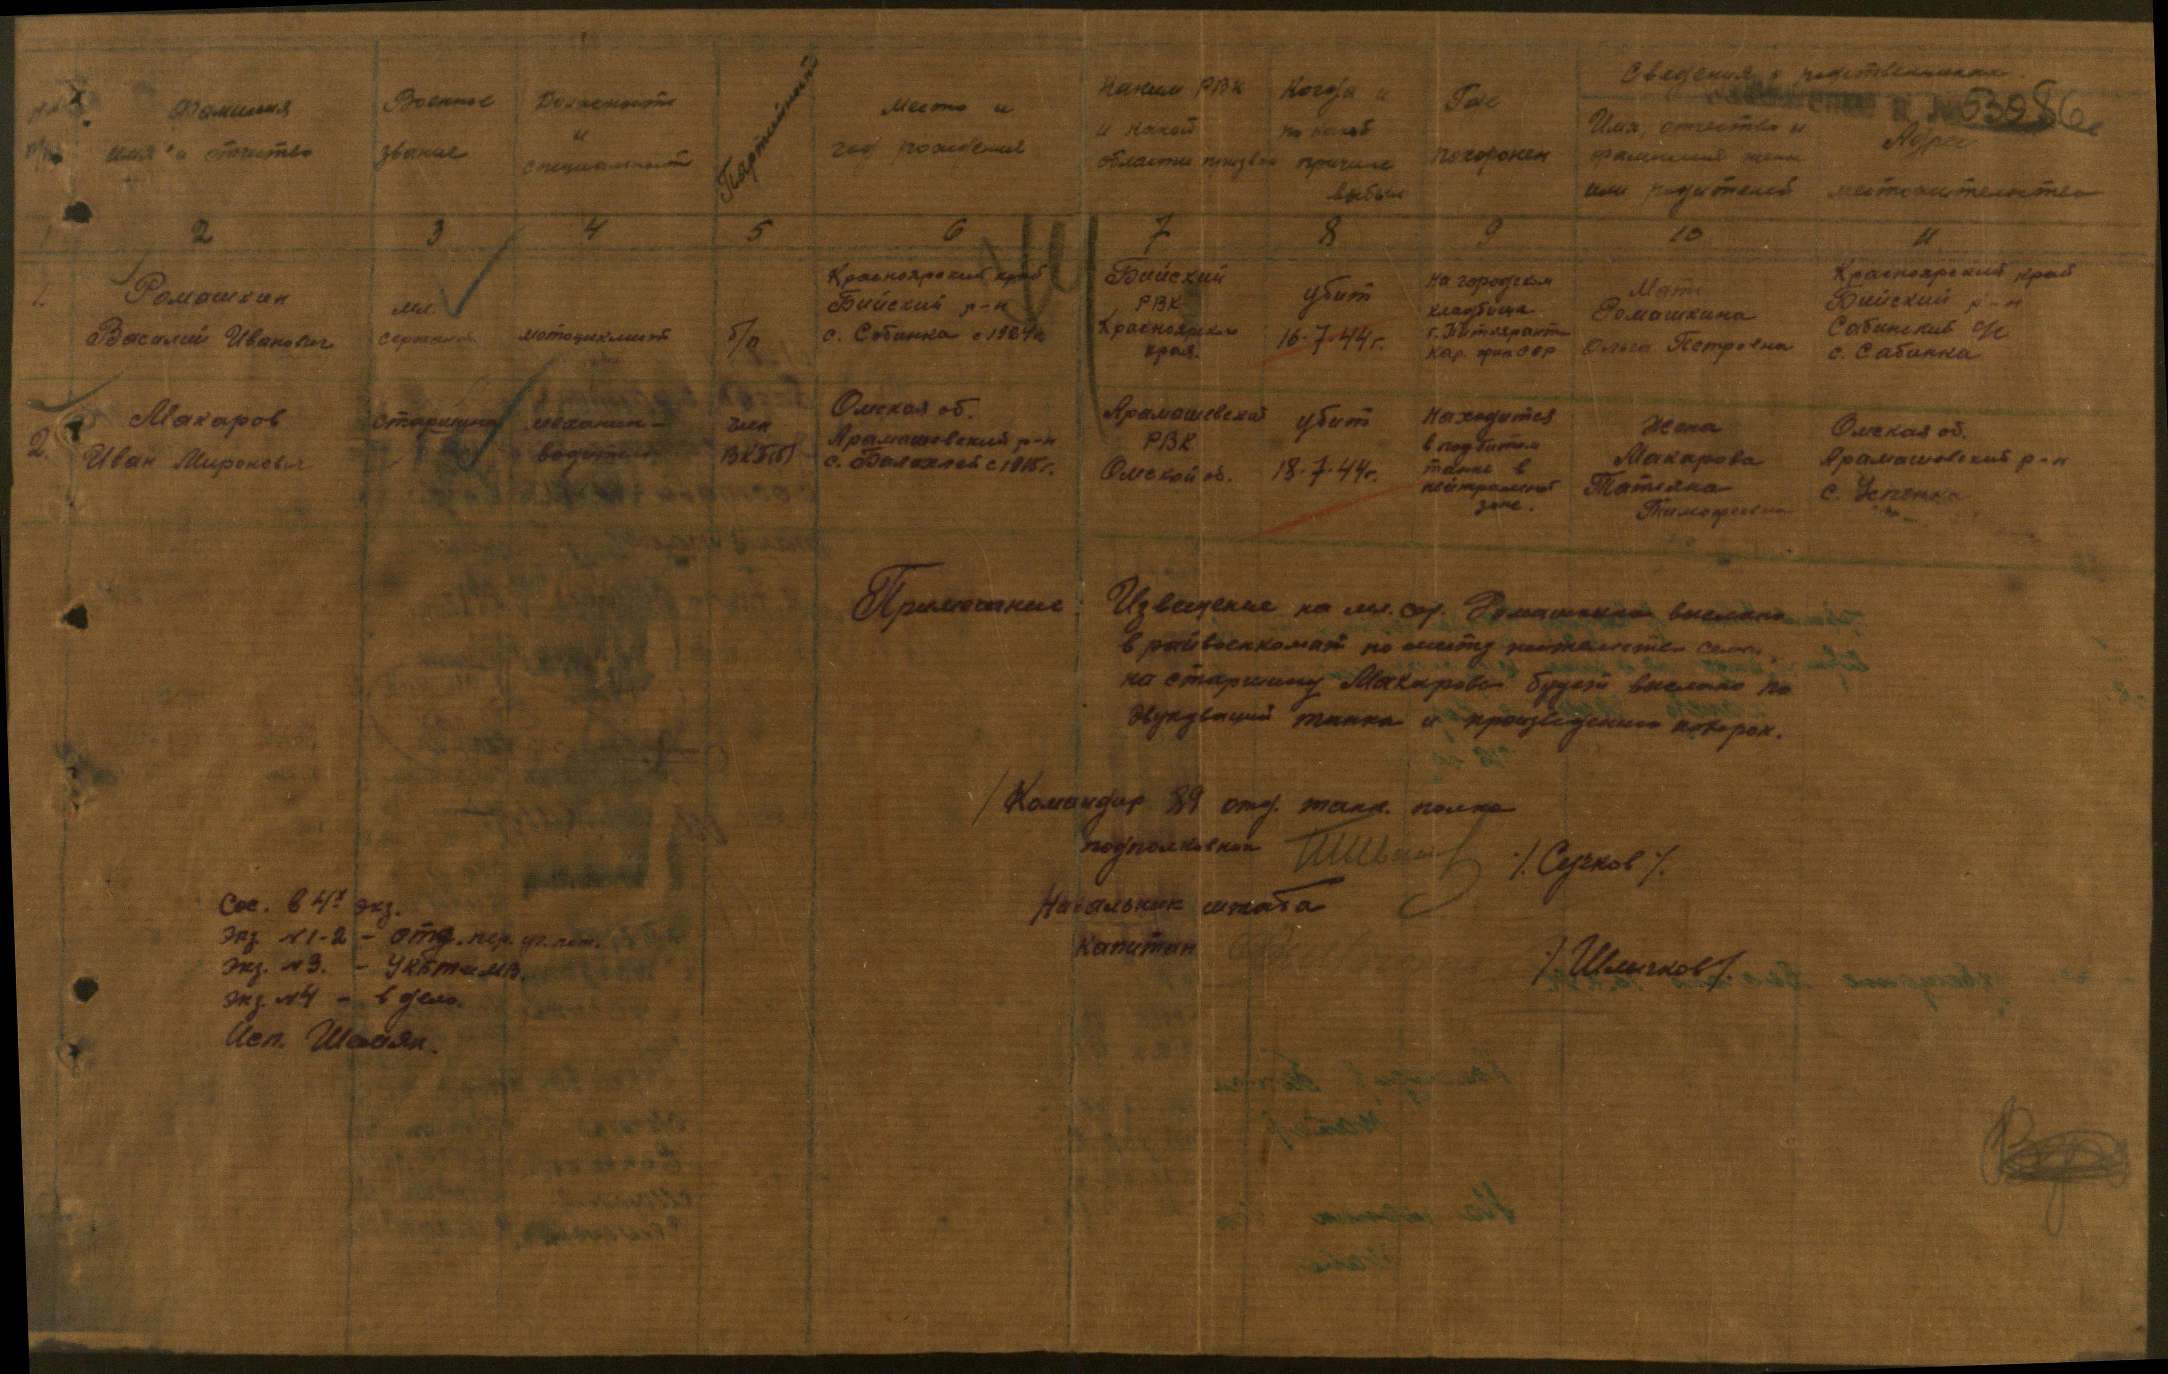 Сведения о родственниках.
№№ п/п
Фамилия
имя и отчество
Военное
звание
Должность
и
специальность
Партийность
Место и
год рождения
Каким РВК
и какой
области призван
Когда и
по какой
причине
выбыл
Где
похоронен
Имя, отчество и
фамилия жены
или родителей
Адрес
местожительства
2 3 4 5 6 7 8 9 10 11
1.
Ромашкин
Василий Иванович
мл.
сержант
мотоциклист
б/п
Красноярский край
Бийский р-н
с. Сабинка с 1924г.
Бийский
РВК
Красноярского
края.
убит
16.7.44г.
На городском
кладбище
г. Питкяранта
Кар. фин ССР
Мать
Ромашкина
Ольга Петровна
Красноярский край
Бийский р-н
Сабинский с/с
с. Сабинка
2.
Макаров
Иван Миронович
старшина
механик-
водитель
член
ВКП(б)
Омская об.
Арамашевский р-н
с. Балахлей с 1915г.
Арамашевский
РВК
Омской об.
убит
18.7.44г.
Находится
в подбитом
танке в
нейтральной
зоне.
Жена
Макарова
Татьяна
Тимофеевна
Омская об.
Арамашовский р-н
с. Успенка
Примечание: Извещение на мл. сер. Ромашкина выслано
в райвоенкомат по месту жительства семьи,
на старшину Макарова будет выслано по
эвукуации танка и произведению похорон.
Командир 89 отд. танк. полка
подполковник /. Сучков /.
Начальник штаба
капитан /. Шлычков /.
Сос. в 4х экз.
Экз. №1-2 – отд. пер. уч. пот.
Экз. №3. – УКБТиМВ.
Экз. №4 – в дело.
Исп.